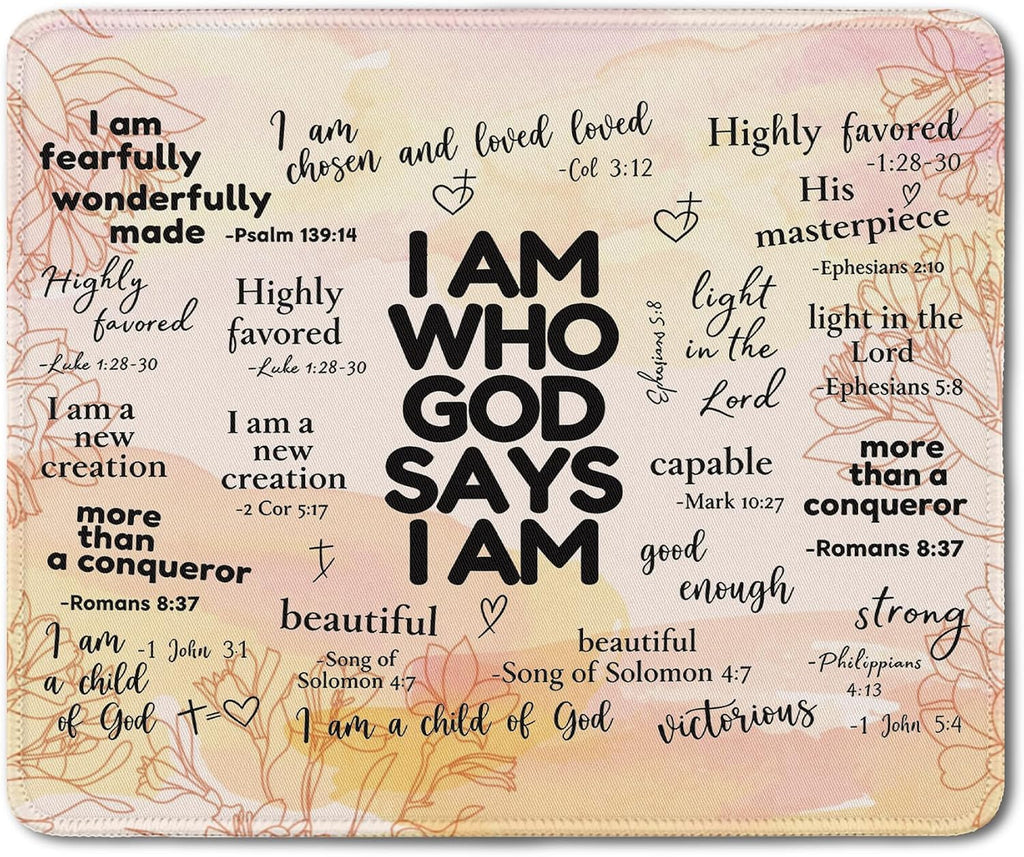 I am
fearfully
wonderfully
made -Psalm 139:14
I am
chosen and loved loved
-Col 3:12
Highly favored
-1:28-30
His
masterpiece
-Ephesians 2:10
Highly
favored
-Luke 1:28-30
Highly
favored
-Luke 1:28-30
I AM
WHO
GOD
SAYS
I AM
Ephesians 5:8
light
in the
Lord
light in the
Lord
-Ephesians 5:8
I am a
new
creation
I am a
new
creation
-2 Cor 5:17
capable
-Mark 10:27
more
than a
conqueror
-Romans 8:37
more
than
a conqueror
-Romans 8:37
good
enough
beautiful
-Song of
Solomon 4:7
beautiful
-Song of Solomon 4:7
strong
-Philippians
4:13
I am -1 John 3:1
a child
of God
I am a child of God
victorious
-1 John 5:4